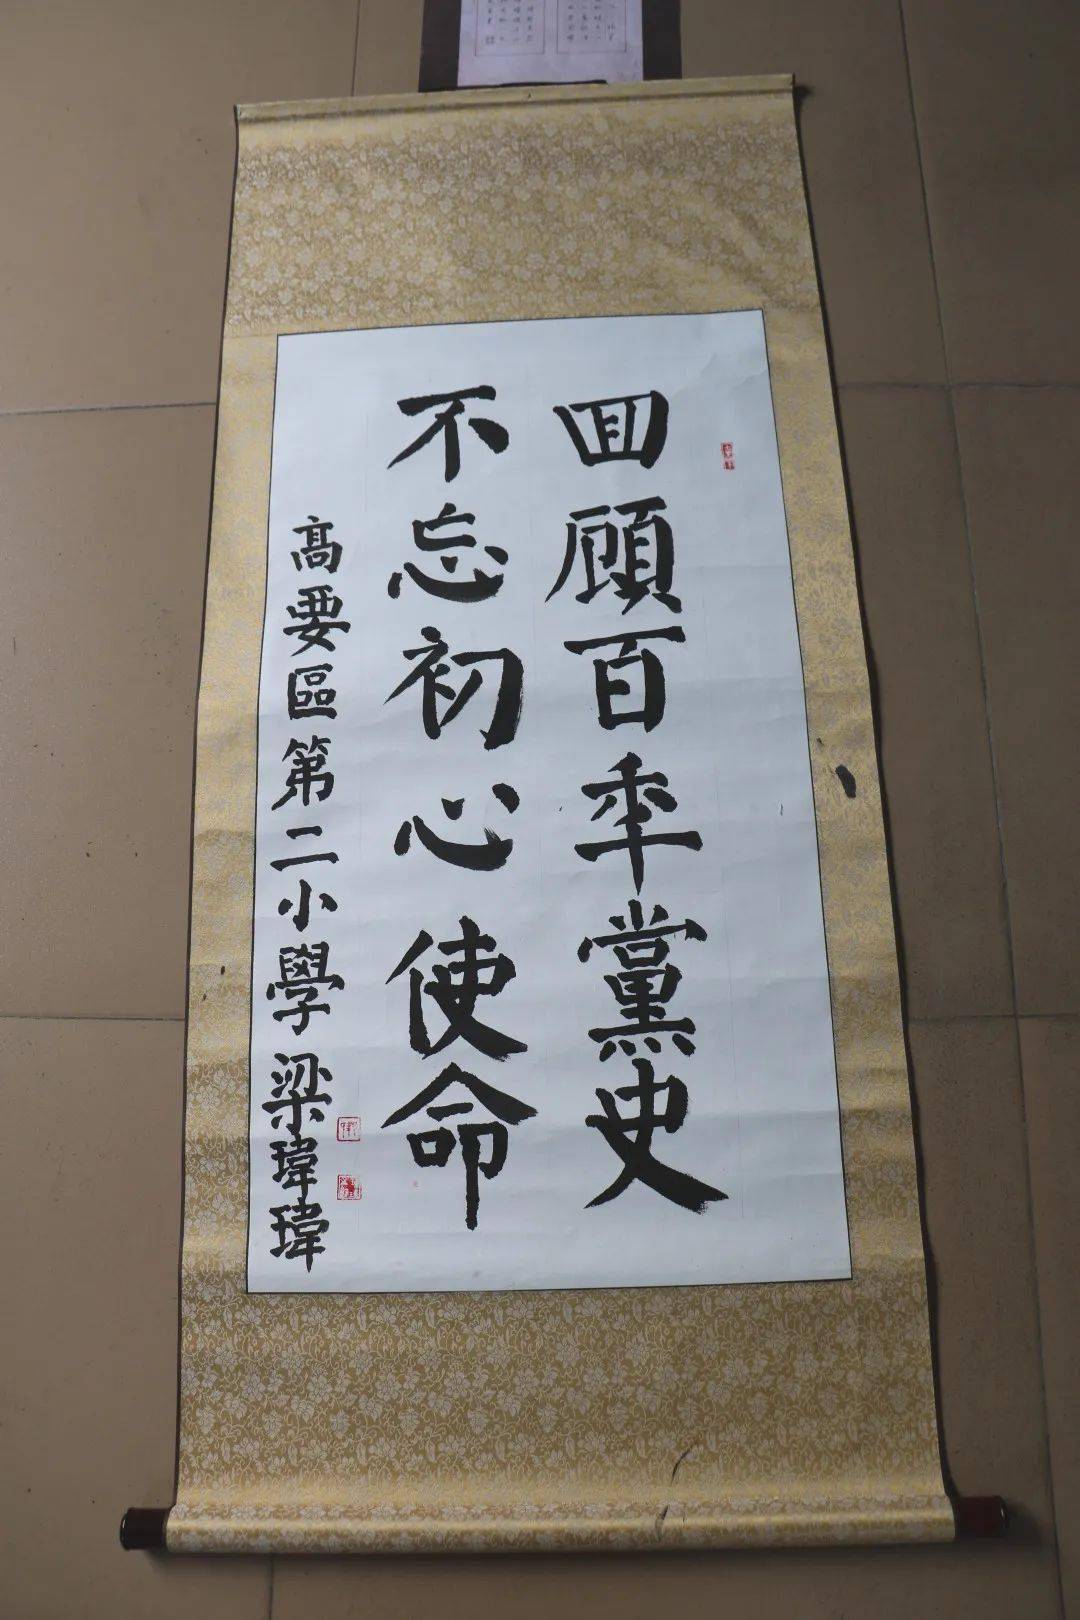 回顧百年黨史
不忘初心使命
高要區第二小學 梁瑋瑋